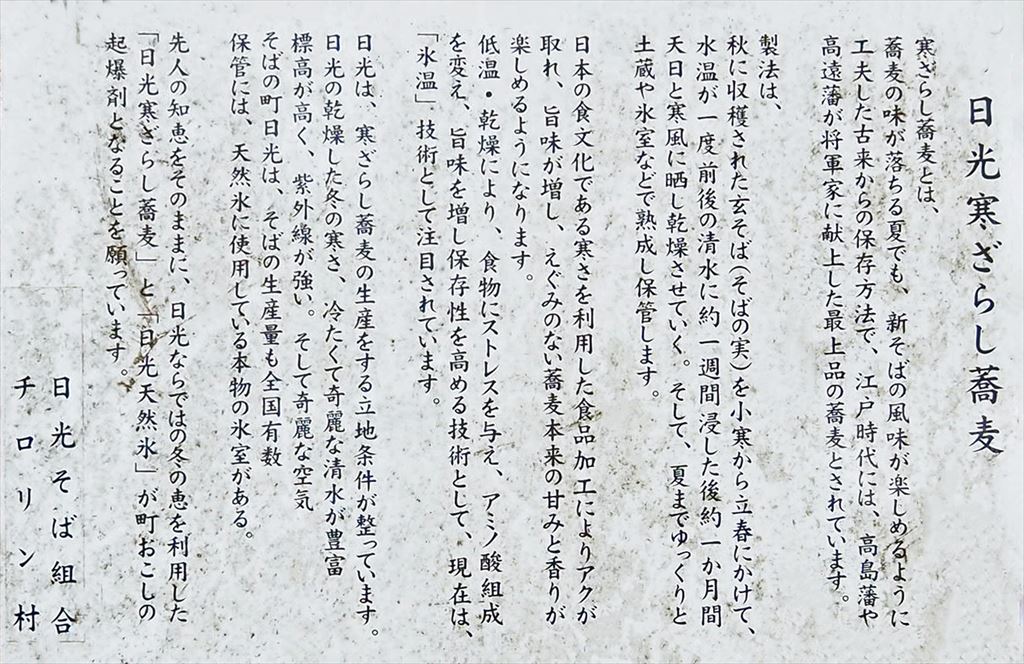 日光寒ざらし蕎麦
寒ざらし蕎麦とは、
蕎麦の味が落ちる夏でも、新そばの風味が楽しめるように
工夫した古来からの保存方法で、江戸時代には、高島藩や
高遠藩が将軍家に献上した最上品の蕎麦とされています。
製法は、
秋に収穫された玄そば(そばの実)を小寒から立春にかけて、
水温が一度前後の清水に約一週間浸した後約一か月間
天日と寒風に晒し乾燥させていく。そして、夏までゆっくりと
土蔵や氷室などで熟成し保管します。
日本の食文化である寒さを利用した食品加工によりアクが
取れ、旨味が増し、えぐみのない蕎麦本来の甘みと香りが
楽しめるようになります。
低温・乾燥により、食物にストレスを与え、アミノ酸組成
を変え、旨味を増し保存性を高める技術として、現在は、
「氷温」技術として注目されています。
日光は、寒ざらし蕎麦の生産をする立地条件が整っています。
日光の乾燥した冬の寒さ、冷たくて奇麗な清水が豊富
標高が高く、紫外線が強い。そして奇麗な空気
そばの町日光は、そばの生産量も全国有数
保管には、天然氷に使用している本物の氷室がある。
先人の知恵をそのままに、日光ならではの冬の恵を利用した
「日光寒ざらし蕎麦」と「日光天然氷」が町おこしの
起爆剤となることを願っています。
日光そば組合
チロリン村